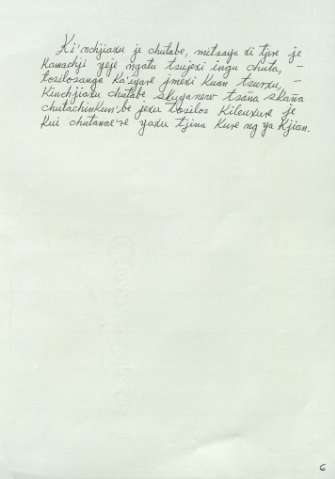 Ki'nchjiaxu je chutabe, mitsaya xi tjve je
Kamachji yeje ngatu tsujexi ingu chuta, –
tosilosanga Ka'eyare jmexi Kuan tsurxu, –
Kinchjiaxu chutabe skuyanero tsaña skaña
chutachinkun'be jexu tosilos Kileuxure je
Kui chutanae're yaxu tjina Kure ng ya Kjian.
6